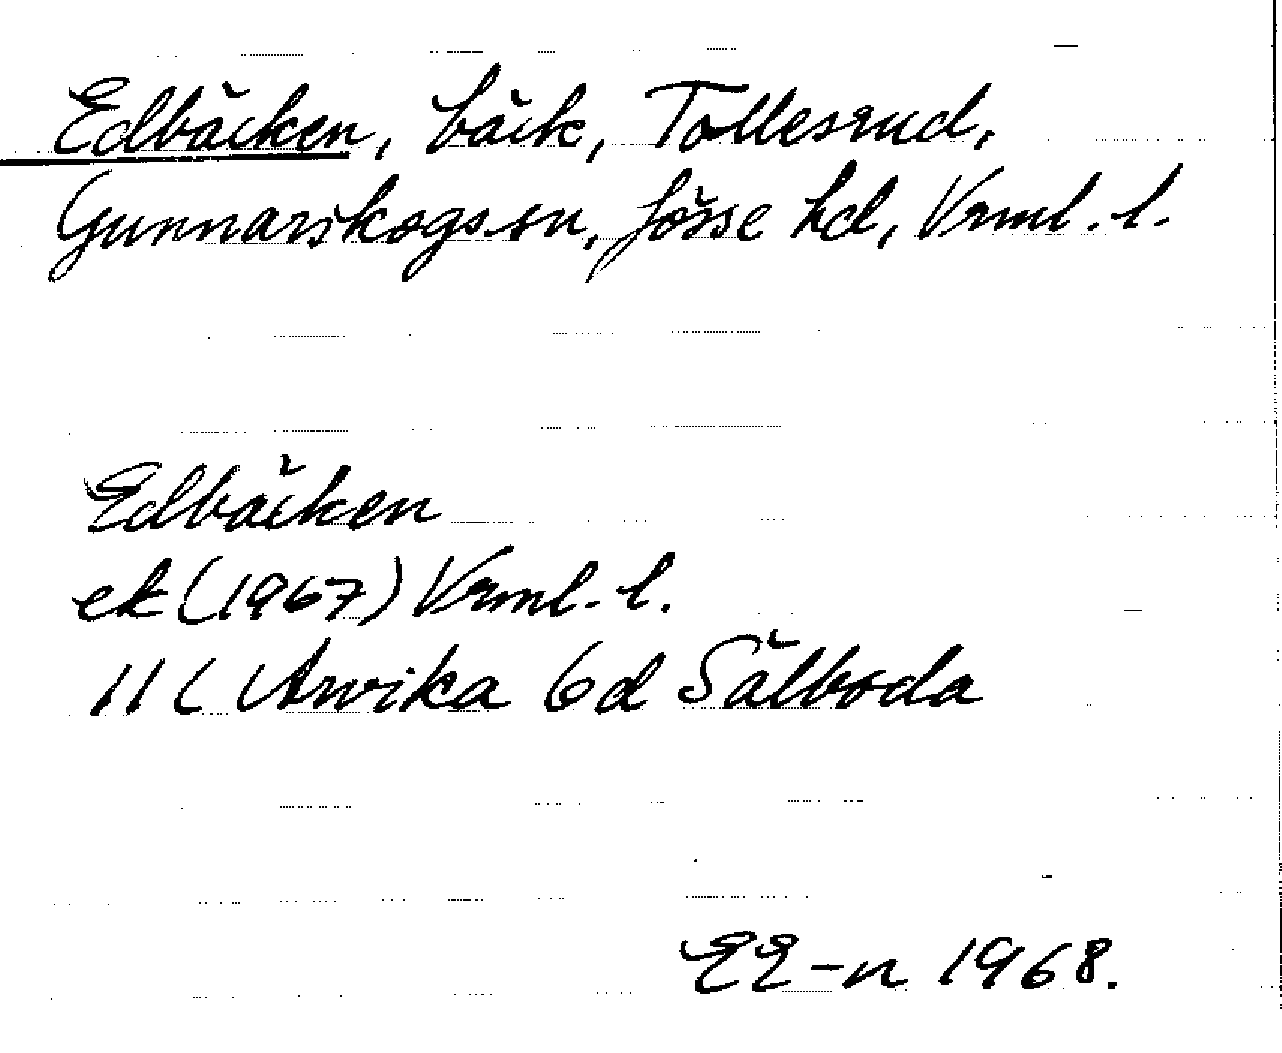 Edbäcken, bäck, Tollesrud,
Gunnarskogs sn, Jösse hd, Vrml. l.
Edbäcken
ek (1967) Vrml. l.
11 C Arvika 6d Sälboda
EE-n 1968.